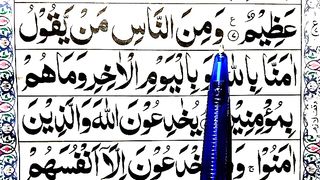 عَظِيْمٌ ۝٧ وَمِنَ النَّاسِ مَنْ يَّقُوْلُ
اٰمَنَّا بِاللّٰهِ وَبِالْيَوْمِ الْاٰخِرِ وَمَا هُمْ
يُخٰدِعُوْنَ اللّٰهَ وَالَّذِيْنَ
اٰمَنُوْا اِلَّآ اَنْفُسَهُمْ